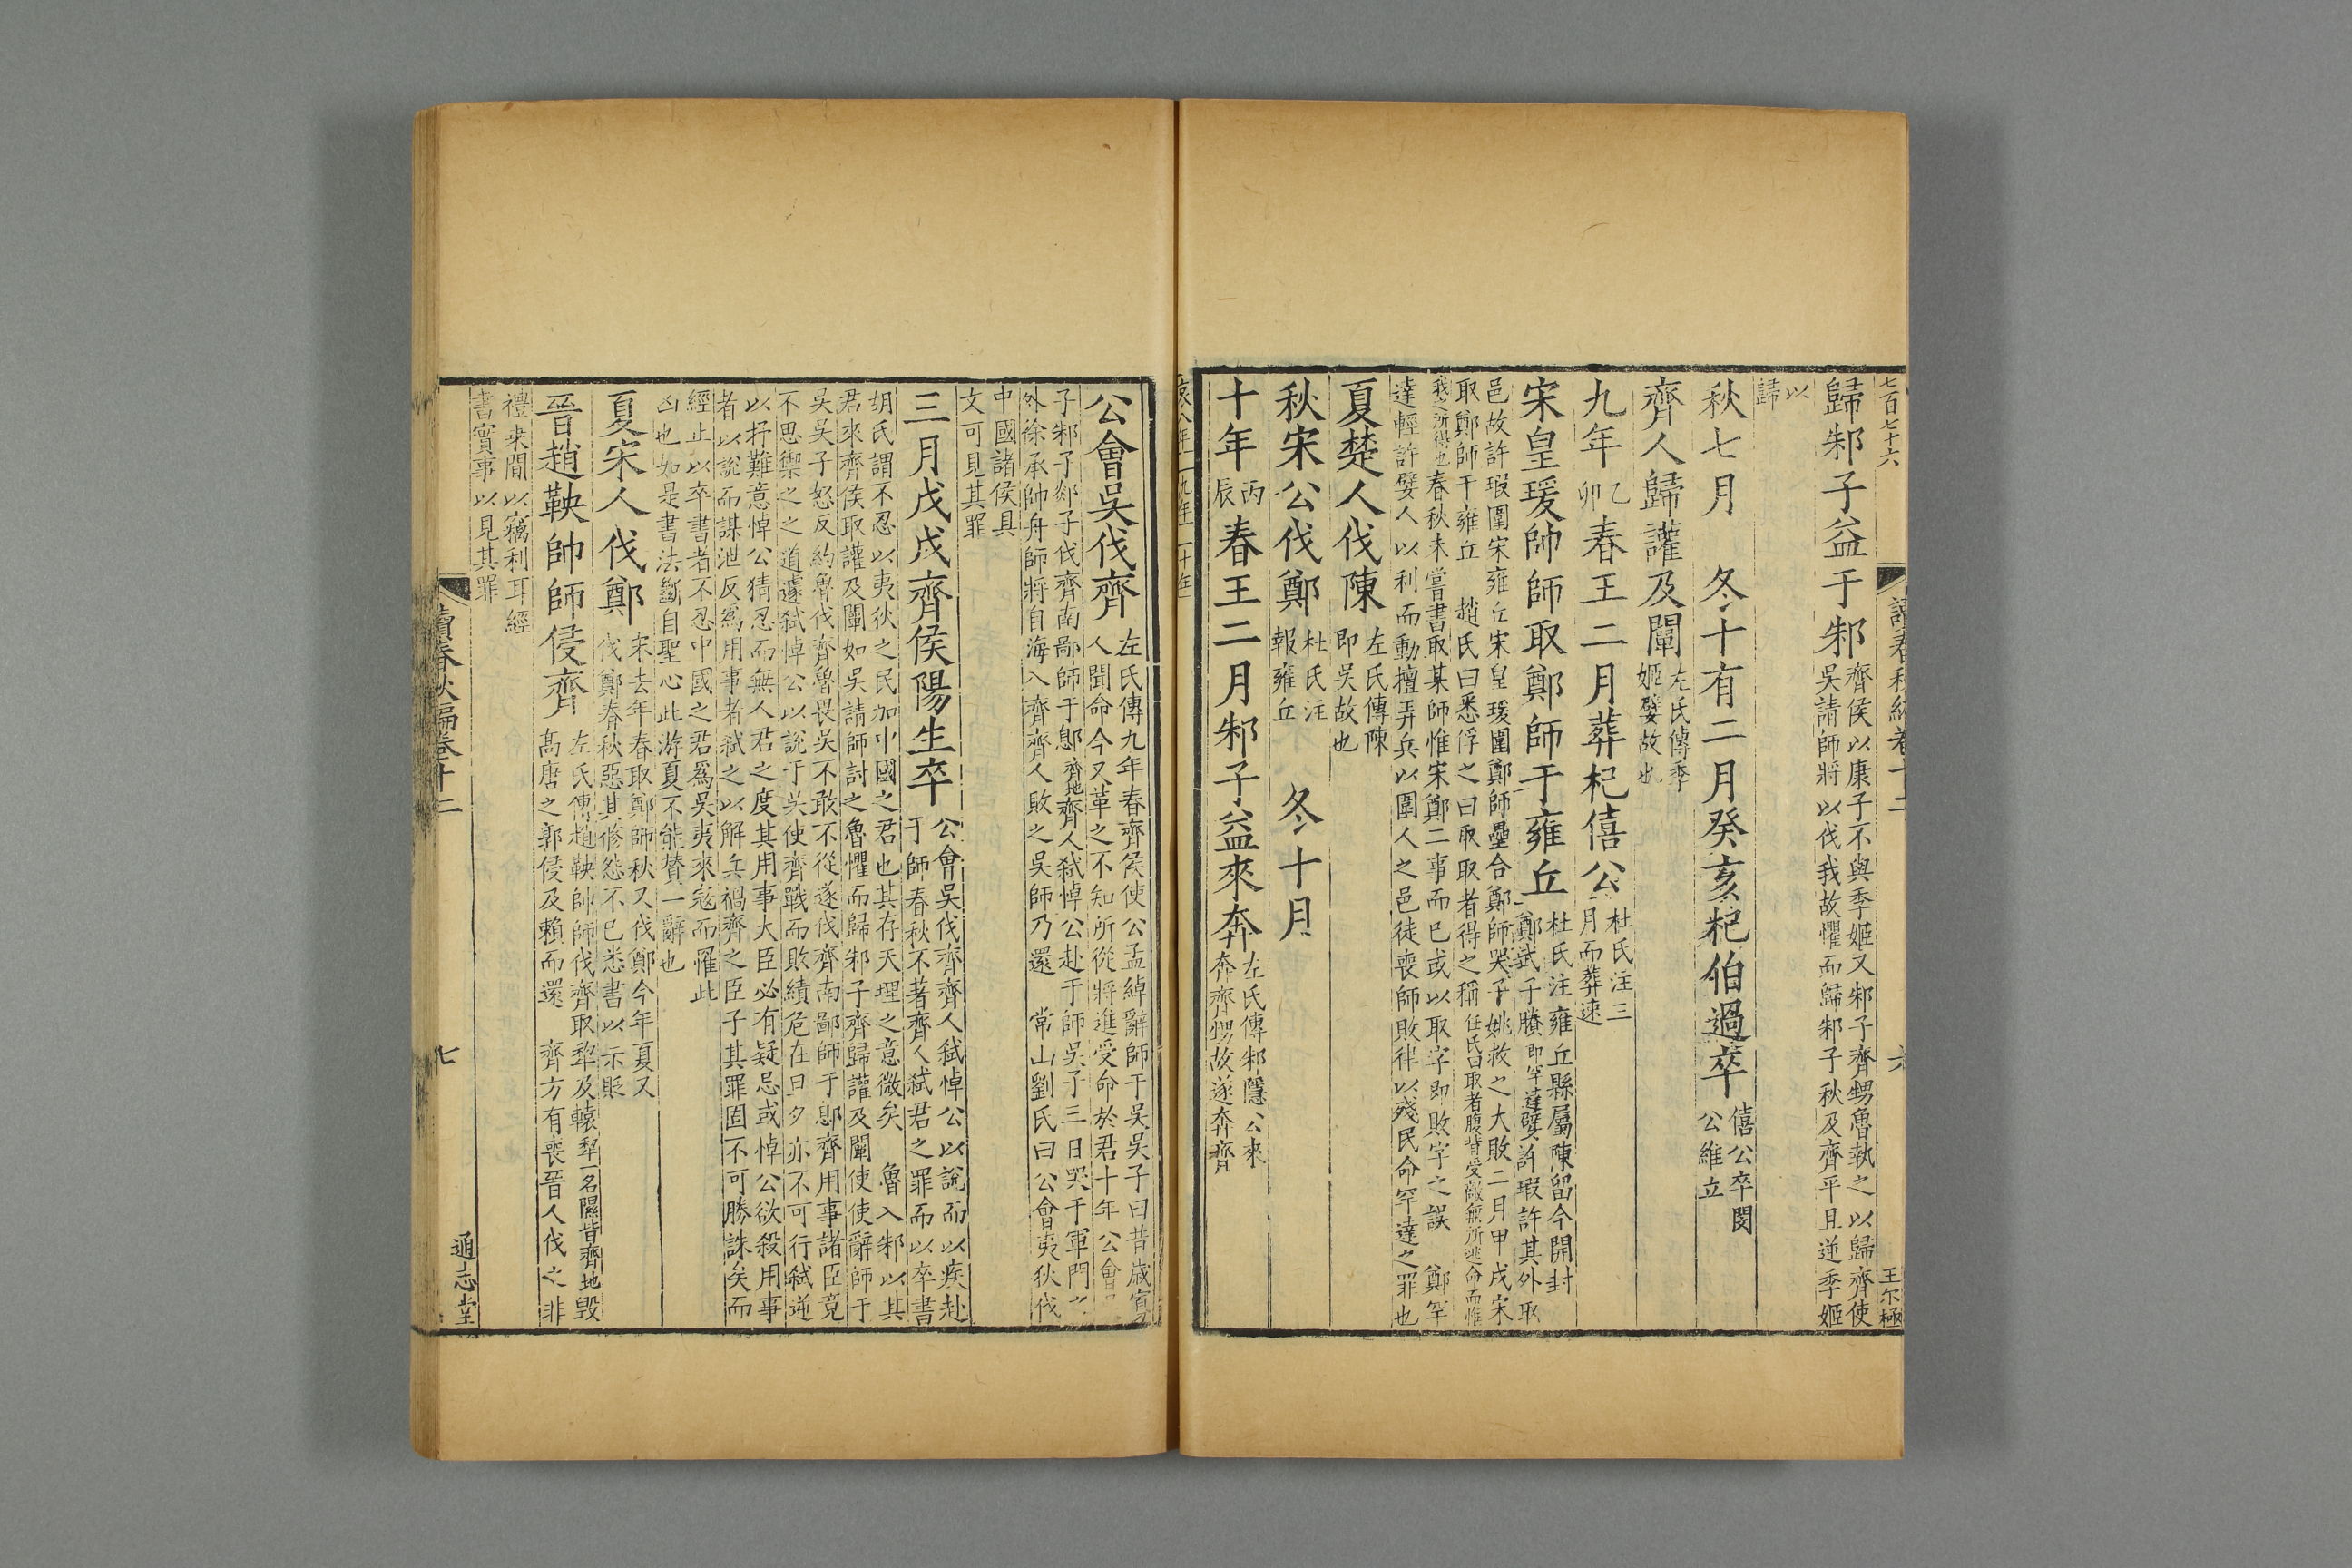 七百七十六
讀春秋編卷十二
六
王尔極
歸邾子益于邾
齊侯以康子不與季姬又邾子齊甥魯執之以歸齊使
吳請師將以伐我故懼而歸邾子秋及齊平且逆季姬
以
歸
秋七月 冬十有二月癸亥杞伯過卒
僖公卒閔
公維立
齊人歸讙及闡
左氏傳季
姬嬖故也
九年
乙
卯
春王二月葬杞僖公
杜氏注三
月而葬速
宋皇瑗帥師取鄭師于雍丘
杜氏注雍丘縣屬陳留今開封
鄭武子賸即罕達嬖許瑕許其外取
邑故許瑕圍宋雍丘宋皇瑗圍鄭師壘合鄭師哭子姚救之大敗二月甲戌宋
取鄭師于雍丘 趙氏曰悉俘之曰取取者得之稱任氏曰取者腹背受敵無所逃命而惟
我之所得也春秋未嘗書取某師惟宋鄭二事而巳或以取字即敗字之誤 鄭罕
達輕許嬖人以利而動擅弄兵以圍人之邑徒喪師敗律以殘民命罕達之罪也
夏楚人伐陳
左氏傳陳
即吳故也
秋宋公伐鄭
杜氏注
報雍丘
冬十月
十年
丙
辰
春王二月邾子益來奔
左氏傳邾隱公來
奔齊甥故遂奔齊
哀八年 九年 十年
公會吳伐齊
左氏傳九年春齊侯使公孟綽辭師于吳吳子曰昔歲寡
人聞命今又革之不知所從將進受命於君十年公會吳
子邾子郯子伐齊南鄙師于鄎齊地齊人弑悼公赴于師吳子三日哭于軍門之
外徐承帥舟師將自海入齊齊人敗之吳師乃還 常山劉氏曰公會夷狄伐
中國諸侯具
文可見其罪
三月戊戌齊侯陽生卒
公會吳伐齊齊人弑悼公以說而以疾赴
于師春秋不著齊人弑君之罪而以卒書
胡氏謂不忍以夷狄之民加中國之君也其存天理之意微矣 魯入邾以其
君來齊侯取讙及闡如吳請師討之魯懼而歸邾子齊歸讙及闡使使辭師于
吳吳子怒反約魯伐齊魯畏吳不敢不從遂伐齊南鄙師于鄎齊用事諸臣竟
不思禦之之道遽弑悼公以說于吳使齊戰而敗績危在旦夕亦不可行弑逆
以扞難意悼公猜忍而無人君之度其用事大臣必有疑忌或悼公欲殺用事
者以說而謀泄反爲用事者弑之以解兵禍齊之臣子其罪固不可勝誅矣而
經止以卒書者不忍中國之君爲吳夷來寇而罹此
凶也如是書法斷自聖心此游夏不能贊一辭也
夏宋人伐鄭
宋去年春取鄭師秋又伐鄭今年夏又
伐鄭春秋惡其修怨不已悉書以示貶
晉趙鞅帥師侵齊
左氏傳趙鞅帥師伐齊取犂及轅犂一名隰皆齊地毀
高唐之郭侵及賴而還 齊方有喪晉人伐之非
禮乘間以竊利耳經
書實事以見其罪
讀春秋編卷十二
七
通志堂